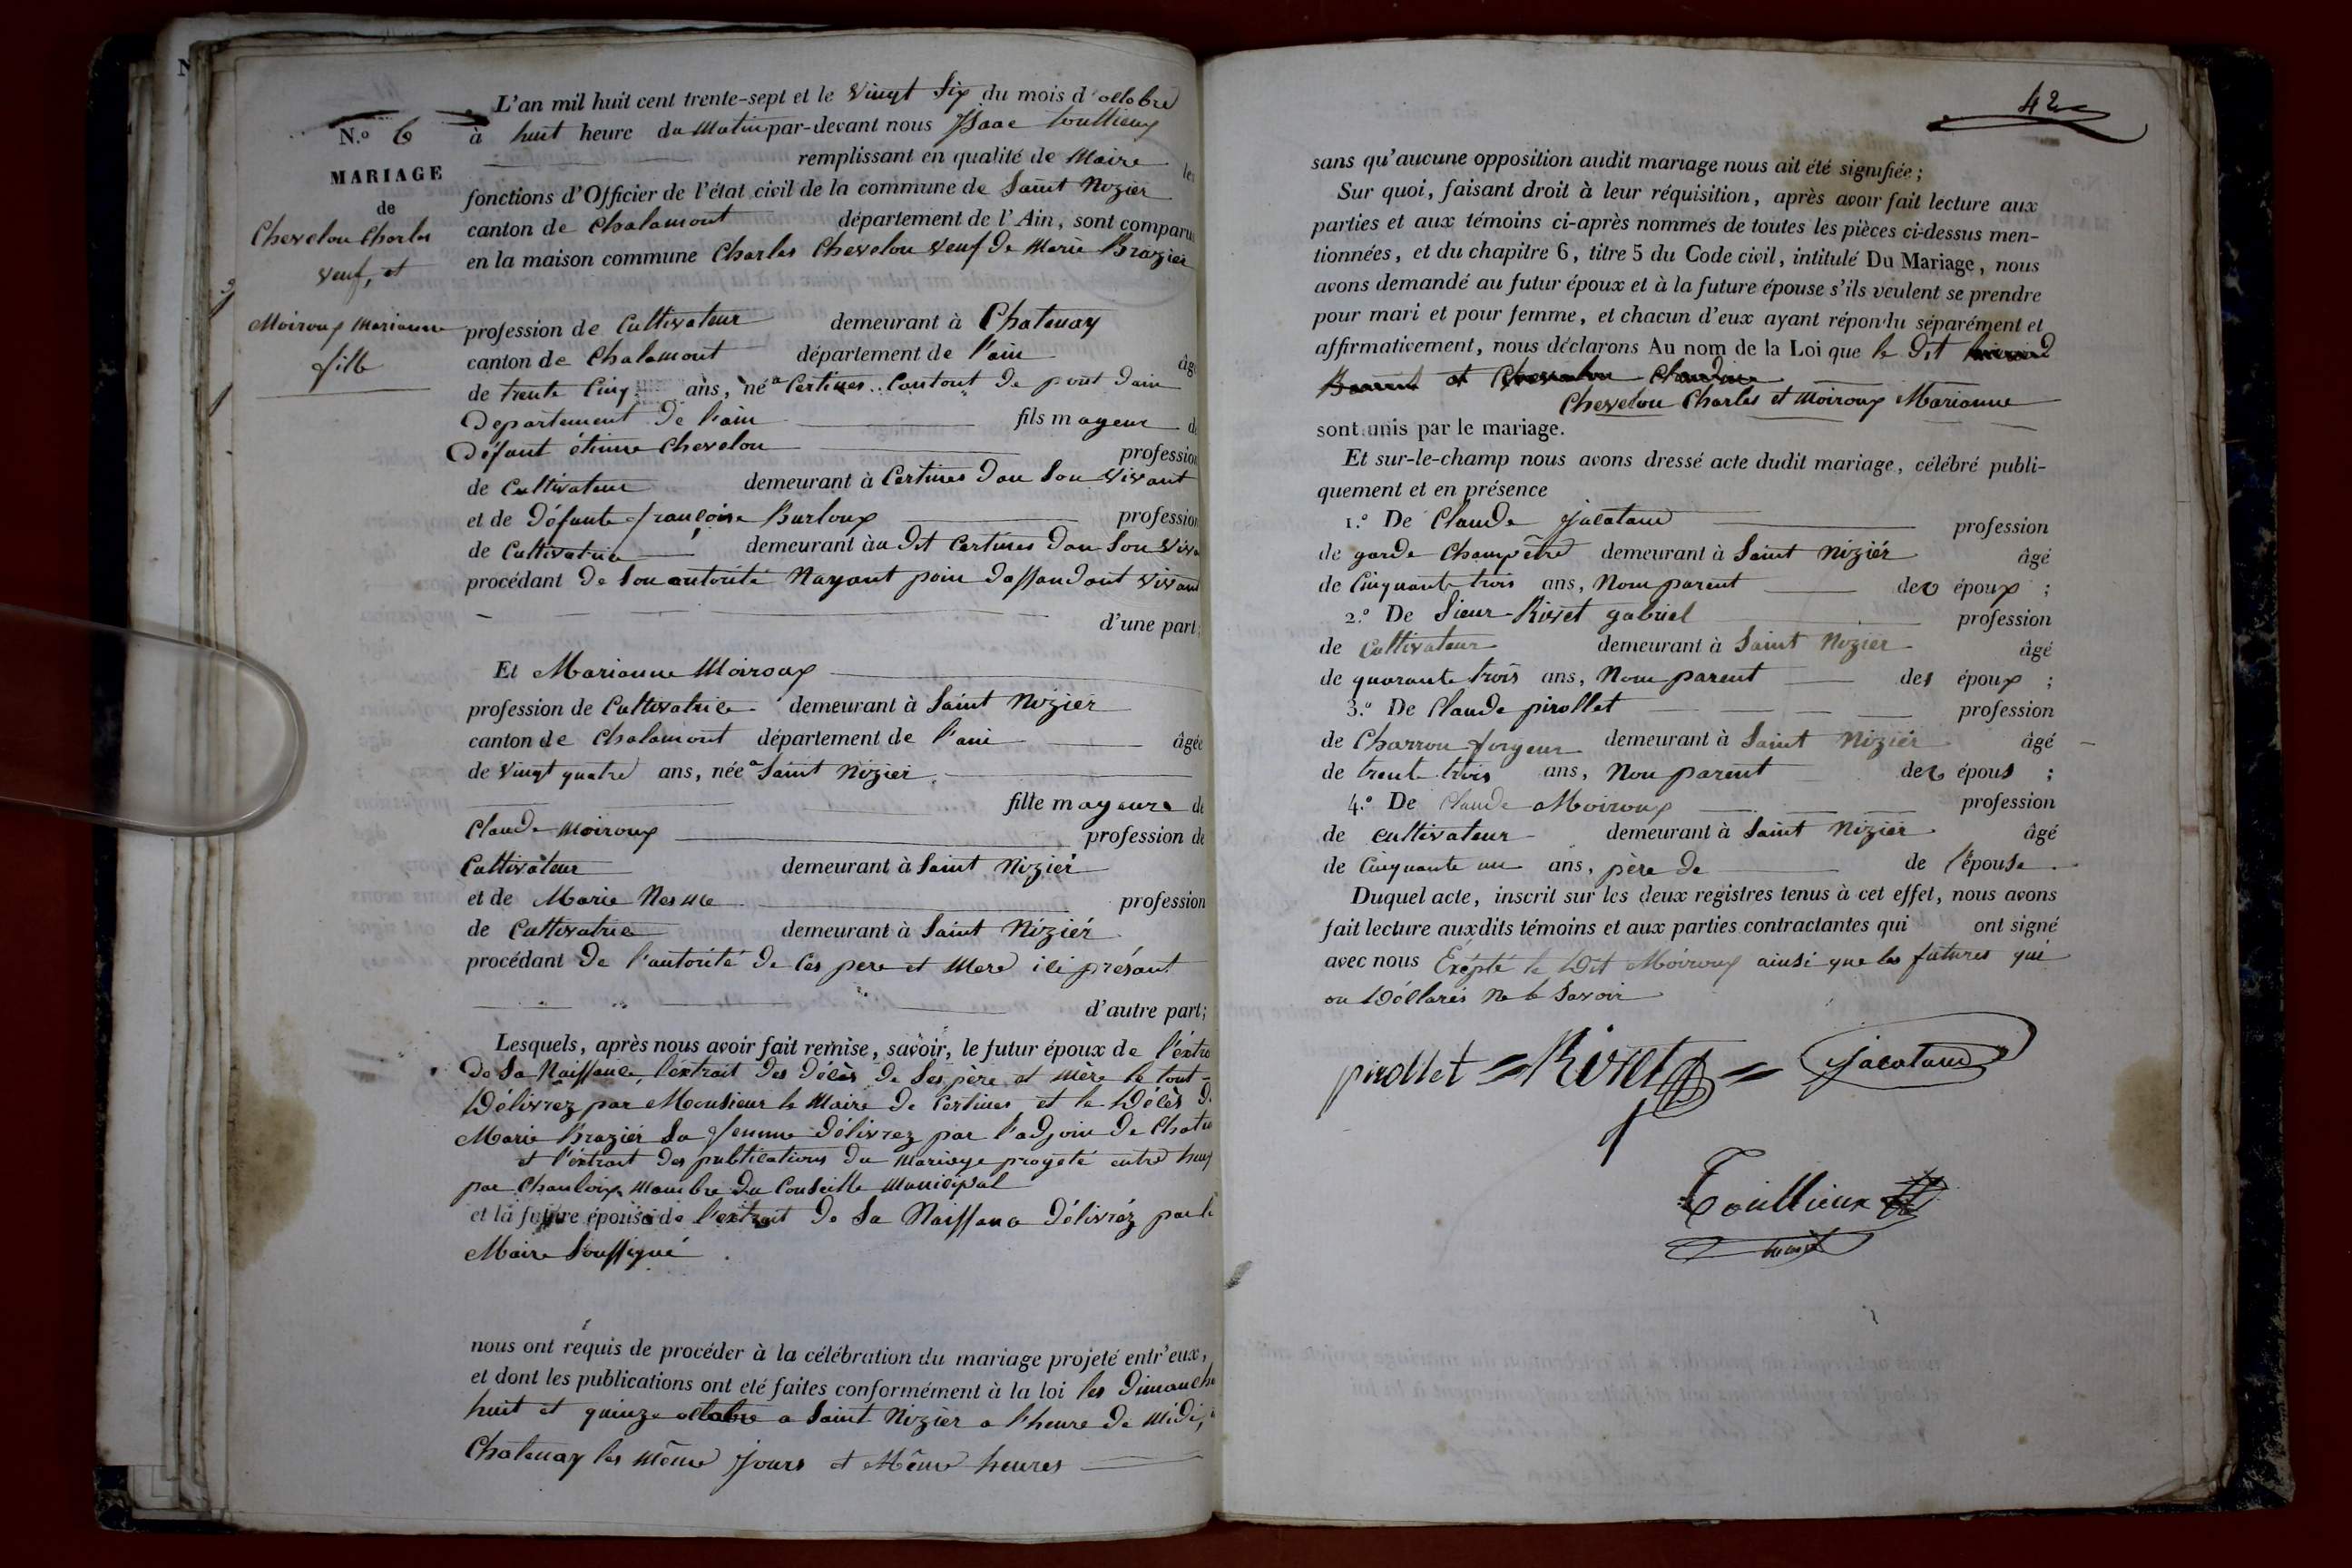 N.o 6
MARIAGE
de
Chevelou Charles
veuf, et
Moiroux Marianne
fille
L'an mil huit cent trente-sept et le vingt Six du mois d'octobre
à huit heure du Matin par-devant nous Isaac Touillieux
remplissant en qualité de Maire les
fonctions d'Officier de l'état civil de la commune de Saint Nizier
canton de Chalamont département de l'Ain, sont comparus
en la maison commune Charles Chevelou veuf de Marie Brazier
profession de Cultivateur demeurant à Chatenay
canton de Chalamont département de l'ain âgé
de trente Cinq ans, né a Certines Canton de pont dain
Departement de l'ain fils mayeur de
Défunt étienne Chevelou profession
de Cultivateur demeurant à Certines dau Son vivant
et de Défunte françoise Burloux profession
de Cultivatrice demeurant àu dit Certines dau Son viva
procédant de Son autorité Nayant poin dassandant vivant
d'une part;
Et Marianne Moiroux
profession de Cultivatrice demeurant à Saint Nizier
canton de Chalamont département de l'ain âgée
de vingt quatre ans, née a Saint Nizier
fille mayeure de
Claude Moiroux profession de
Cultivateur demeurant à Saint Nizier
et de Marie Nesme profession
de Cultivatrice demeurant à Saint Nizier
procédant de l'autorité de Ces pere et Mere ici présant
d'autre part;
Lesquels, après nous avoir fait remise, savoir, le futur époux de l'extra
de Sa Naissance, l'extrait des décès de Ses père et mère le tout
Délivrez par Monsieur le Maire de Certines et le Décès d
Marie Brazier Sa femme délivrez par l'adjoin de Chate
et l'éxtrait des publications du mariage projeté entre heux
par Manbre du Conseille Municipal
et la future épouse de l'extrait de Sa Naissance délivréz par le
Maire Soussigné
nous ont requis de procéder à la célébration du mariage projeté entr'eux,
et dont les publications ont été faites conformément à la loi les Dimanche
huit et quinze octobre a Saint Nizier a l'heure de Midi, a
Chatenay les même Jours et Même heures
42
sans qu'aucune opposition audit mariage nous ait été signifiée;
Sur quoi, faisant droit à leur réquisition, après avoir fait lecture aux
parties et aux témoins ci-après nommés de toutes les pièces ci-dessus men-
tionnées, et du chapitre 6, titre 5 du Code civil, intitulé Du Mariage, nous
avons demandé au futur époux et à la future épouse s'ils veulent se prendre
pour mari et pour femme, et chacun d'eux ayant répondu séparément et
affirmativement, nous déclarons Au nom de la Loi que le dit
et
Chevelou Charles et Moiroux Marianne
sont unis par le mariage.
Et sur-le-champ nous avons dressé acte dudit mariage, célébré publi-
quement et en présence
1.o De Claude Jacataud profession
de garde Champêtre demeurant à Saint Niziér âgé
de Cinquante trois ans, Nom parent des époux ;
2.o De Sieur Rivet gabriel profession
de Cultivateur demeurant à Saint Nizier âgé
de quarante trois ans, Nom parent des époux ;
3.o De Claude pirollet profession
de Charron forgeur demeurant à Saint Nizier âgé
de trente trois ans, Non parent des épous ;
4.o De Claude Moiroux profession
de cultivateur demeurant à Saint Nizier âgé
de Cinquante un ans, père de de l'épouse
Duquel acte, inscrit sur les deux registres tenus à cet effet, nous avons
fait lecture auxdits témoins et aux parties contractantes qui ont signé
avec nous Éxépté le Dit Moiroux ainsi que les futures qui
on Déllarés ne le Savoir
pirollet Rivet Jacataud
Touillieux
maire